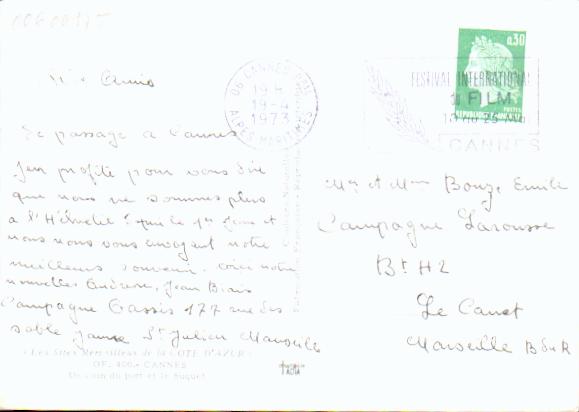 00600175
Amis
De passage a Cannes
J'en profite pour vous dire
que nous ne sommes plus
a l'Helvetie! que le 1er Juin et
nous nous vous envoyant notre
meilleurs souvenir. notre
nouvelles Jean
Campagne Cassis 177 rue des
sable jaune St Julien Marseille
"Les Sites Merveilleux de la COTE D'AZUR"
OF. 400. - CANNES
Un coin du port et le Suquet
06 CANNES PPAL
19 H
19-4
1973
ALPES MARITIMES
0,30
POSTES
REPUBLIQUE FRANCAISE
FESTIVAL INTERNATIONAL
du FILM
10 AU 25 MAI
CANNES
Mr et Mme Bouze Emile
Campagne Larousse
Bt H2
Le Canet
Marseille B du R